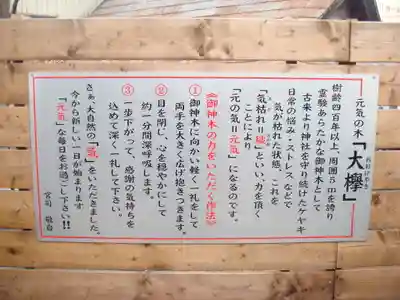 元気の木「大欅」
おおけやき
樹齢四百年以上、周囲5mを誇り
霊験あらたかな御神木として
古来より神社を守り続けたケヤキ
日常の悩み・ストレスなどで
気が枯れた状態、これを
「気枯れ=穢」といい、力を頂く
ことにより
「元の気=元気」になるのです。
《御神木の力をいただく作法》
①御神木に向かい軽く一礼をして
両手を大きく広げ抱きつきます。
②目を閉じ、心を穏やかにして
約一分間深呼吸します。
③一歩下がって、感謝の気持ちを
込めて深く一礼して下さい。
さぁ、大自然の「氣」をいただきました。
今から新しい一日が始まります
「元氣」な毎日をお過ごし下さい!!
宮司 敬白